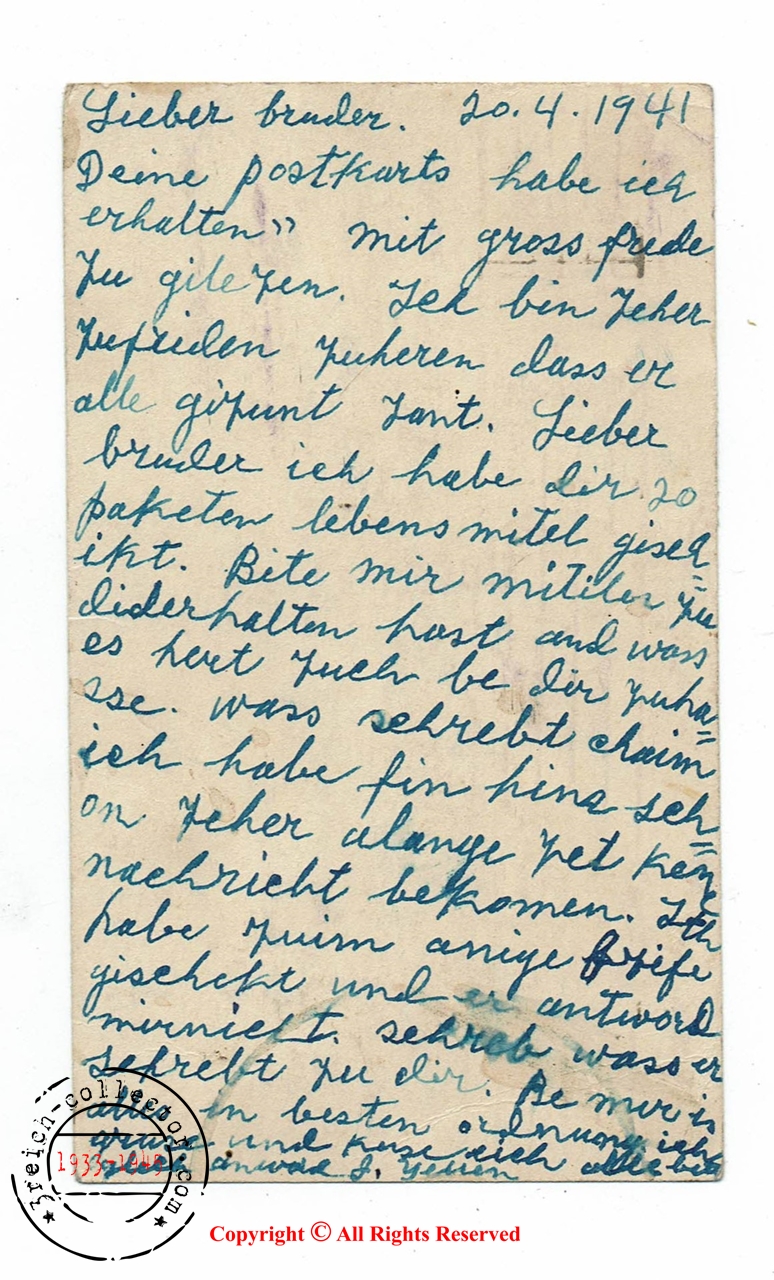 Lieber bruder. 20.4.1941
Deine postkarts habe ich
erhalten" mit gross frede
zu gilezen. Ich bin zeher
zufriden zuheren dass er
alle gizunt zant. Lieber
bruder ich habe dir 20
paketen lebensmitel gisch
ikt. Bite mir mitilen zu=
diderhalten hast and wass
es hert zuch be dir zuha=
sse. wass schrebt chaim
ich habe fin hina sch=
on zeher alange zet ken
nachricht bekomen. Ich
habe zuim anige brife
gischekt und er antword
mirnicht. schreb wass er
schrebt zu dir. Be mir is
alles in besten ordnung ich
und kuse eich alle
anword
3reich-collector.com
1933-1945
Copyright © All Rights Reserved